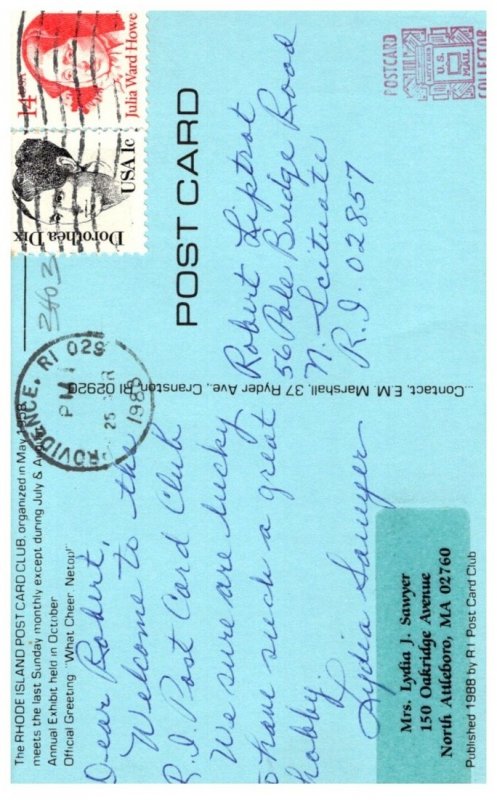 The RHODE ISLAND POST CARD CLUB, organized in May 1958
meets the last Sunday monthly except during July & August
Annual Exhibit held in October
Official Greeting "What Cheer, Netop!"
Dear Robert,
Welcome to the
R.I. Post Card Club
We sure are lucky
to have such a great
hobby.
Lydia Sawyer
Mrs. Lydia J. Sawyer
150 Oakridge Avenue
North Attleboro, MA 02760
Published 1988 by RI Post Card Club
...Contact, E.M. Marshall, 37 Ryder Ave., Cranston, RI 02920
POST CARD
Robert Liptrot
56 Pole Bridge Road
N. Scituate
R.I. 02857
14 USA
Julia Ward Howe
Dorothea Dix
USA 1c
3403
PROVIDENCE, RI 029
PM
25
POSTCARD
LETTERS
U.S.
MAIL
COLLECTOR